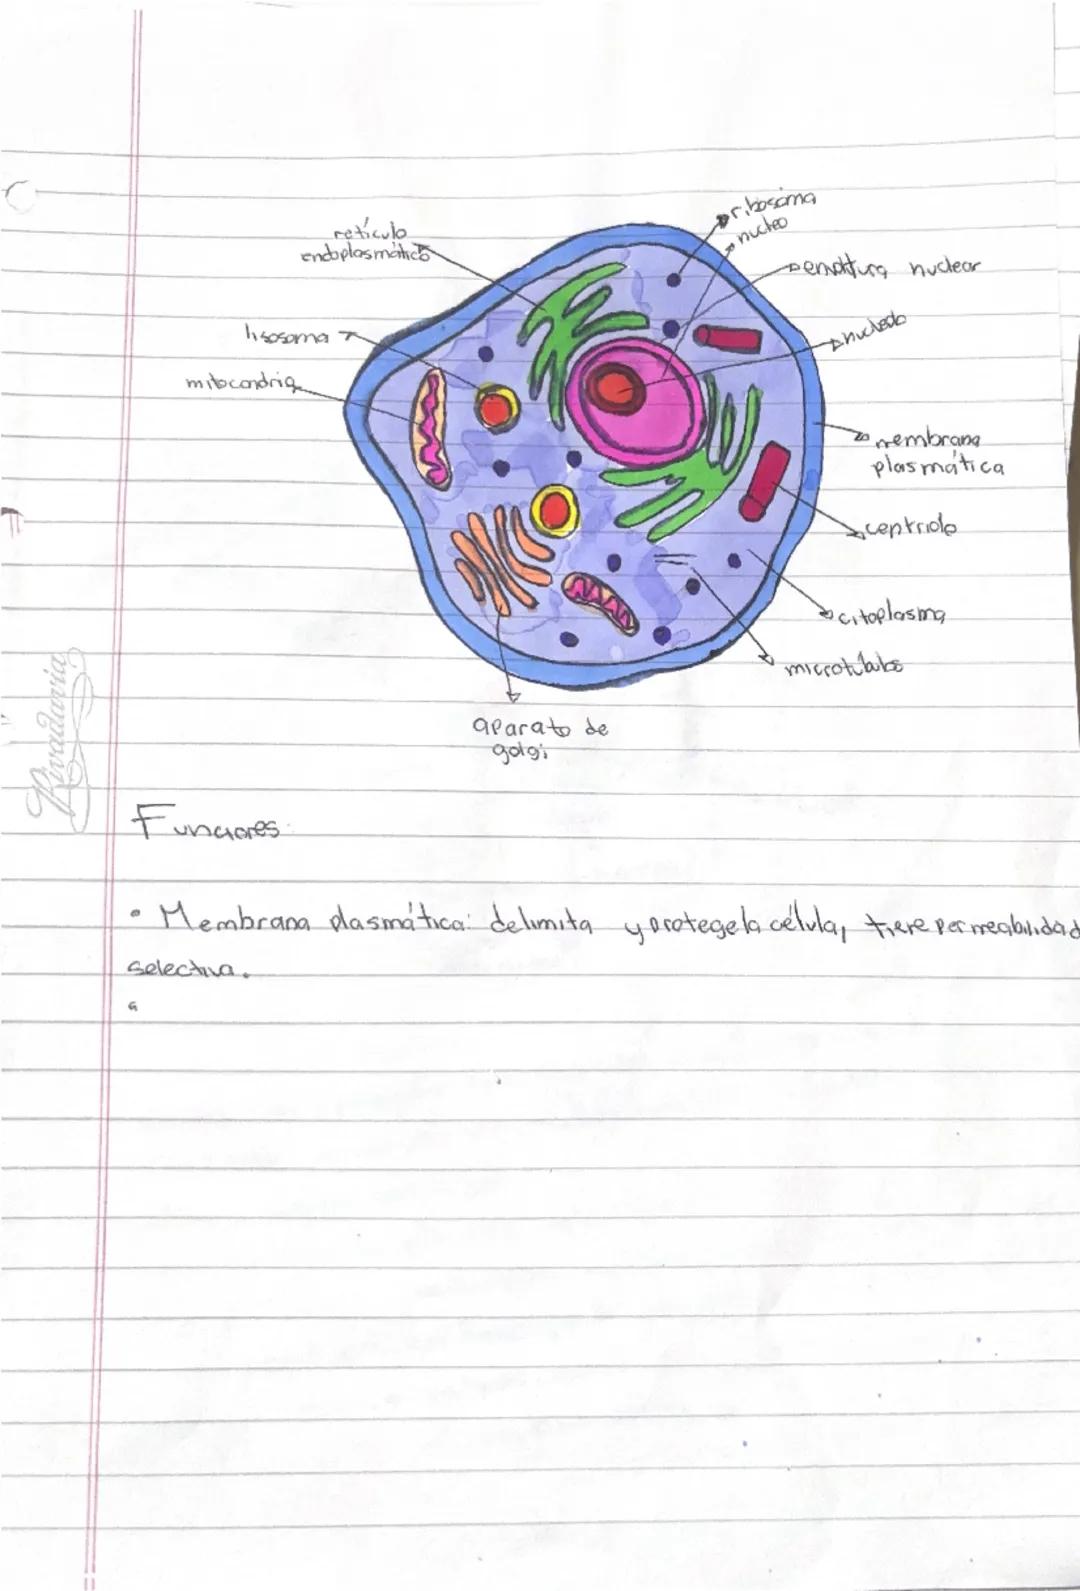 ribosoma
nucleo
retículo
endoplasmático
envoltura nuclear
lisosoma
nucleolo
mitocondria
membrana
plasmática
centriolo
citoplasma
microtúbulos
aparato de
golgi
Rivadavia
Funciones:
• Membrana plasmática: delimita y protege la célula, tiene permeabilidad
selectiva.